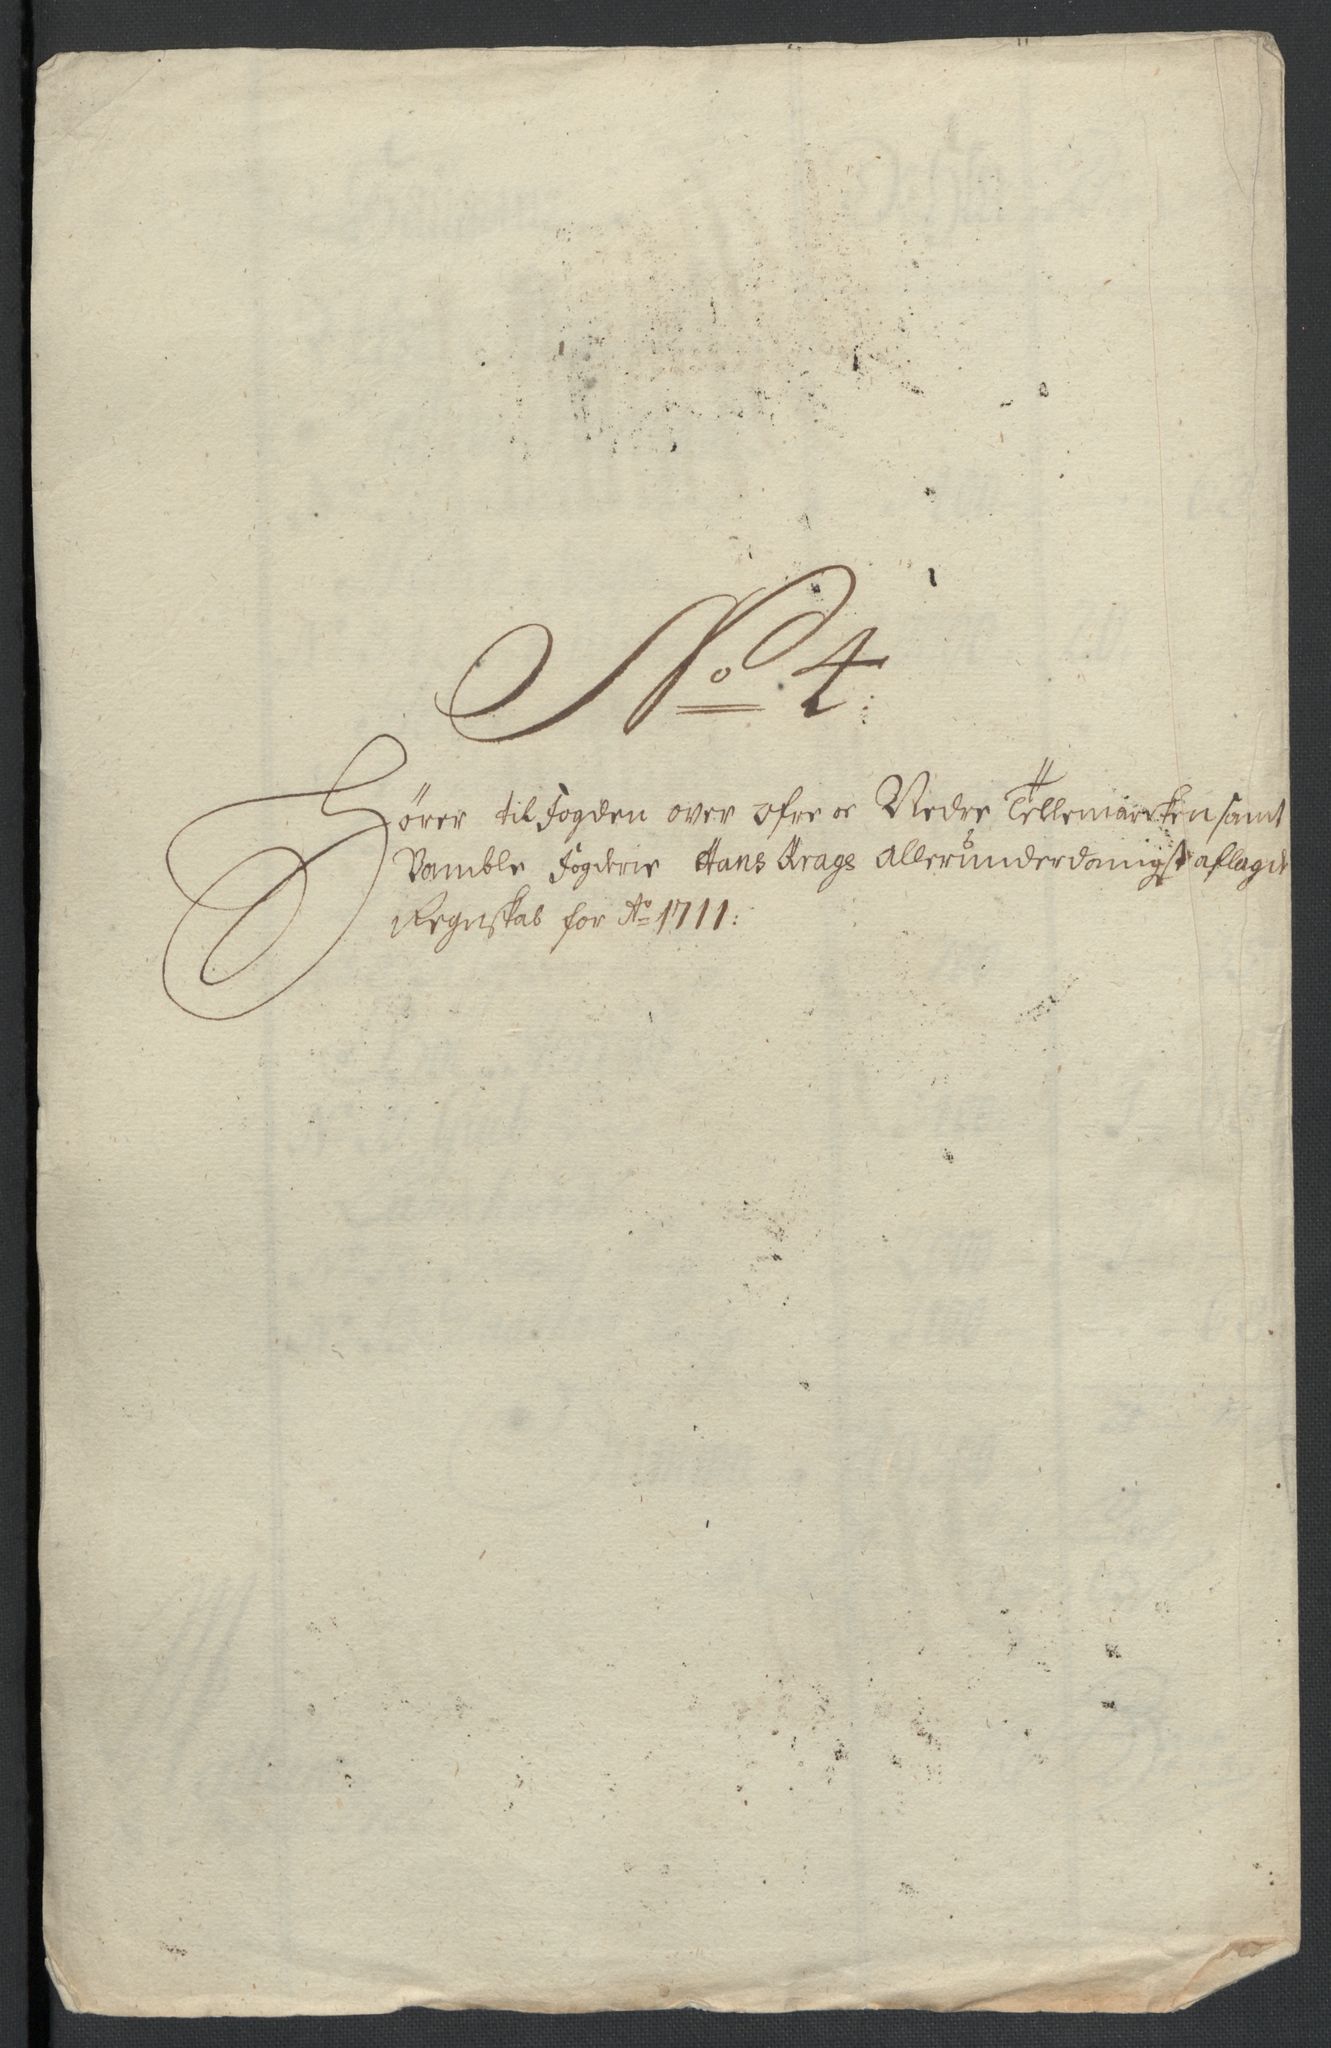 No 4
Hörer til Fogden over öfre oc Nedre Tellemarcken samt
Bamble Fogderie Hans Krags Allerunderdanigst aflagde
Regnskab for Ao 1711: